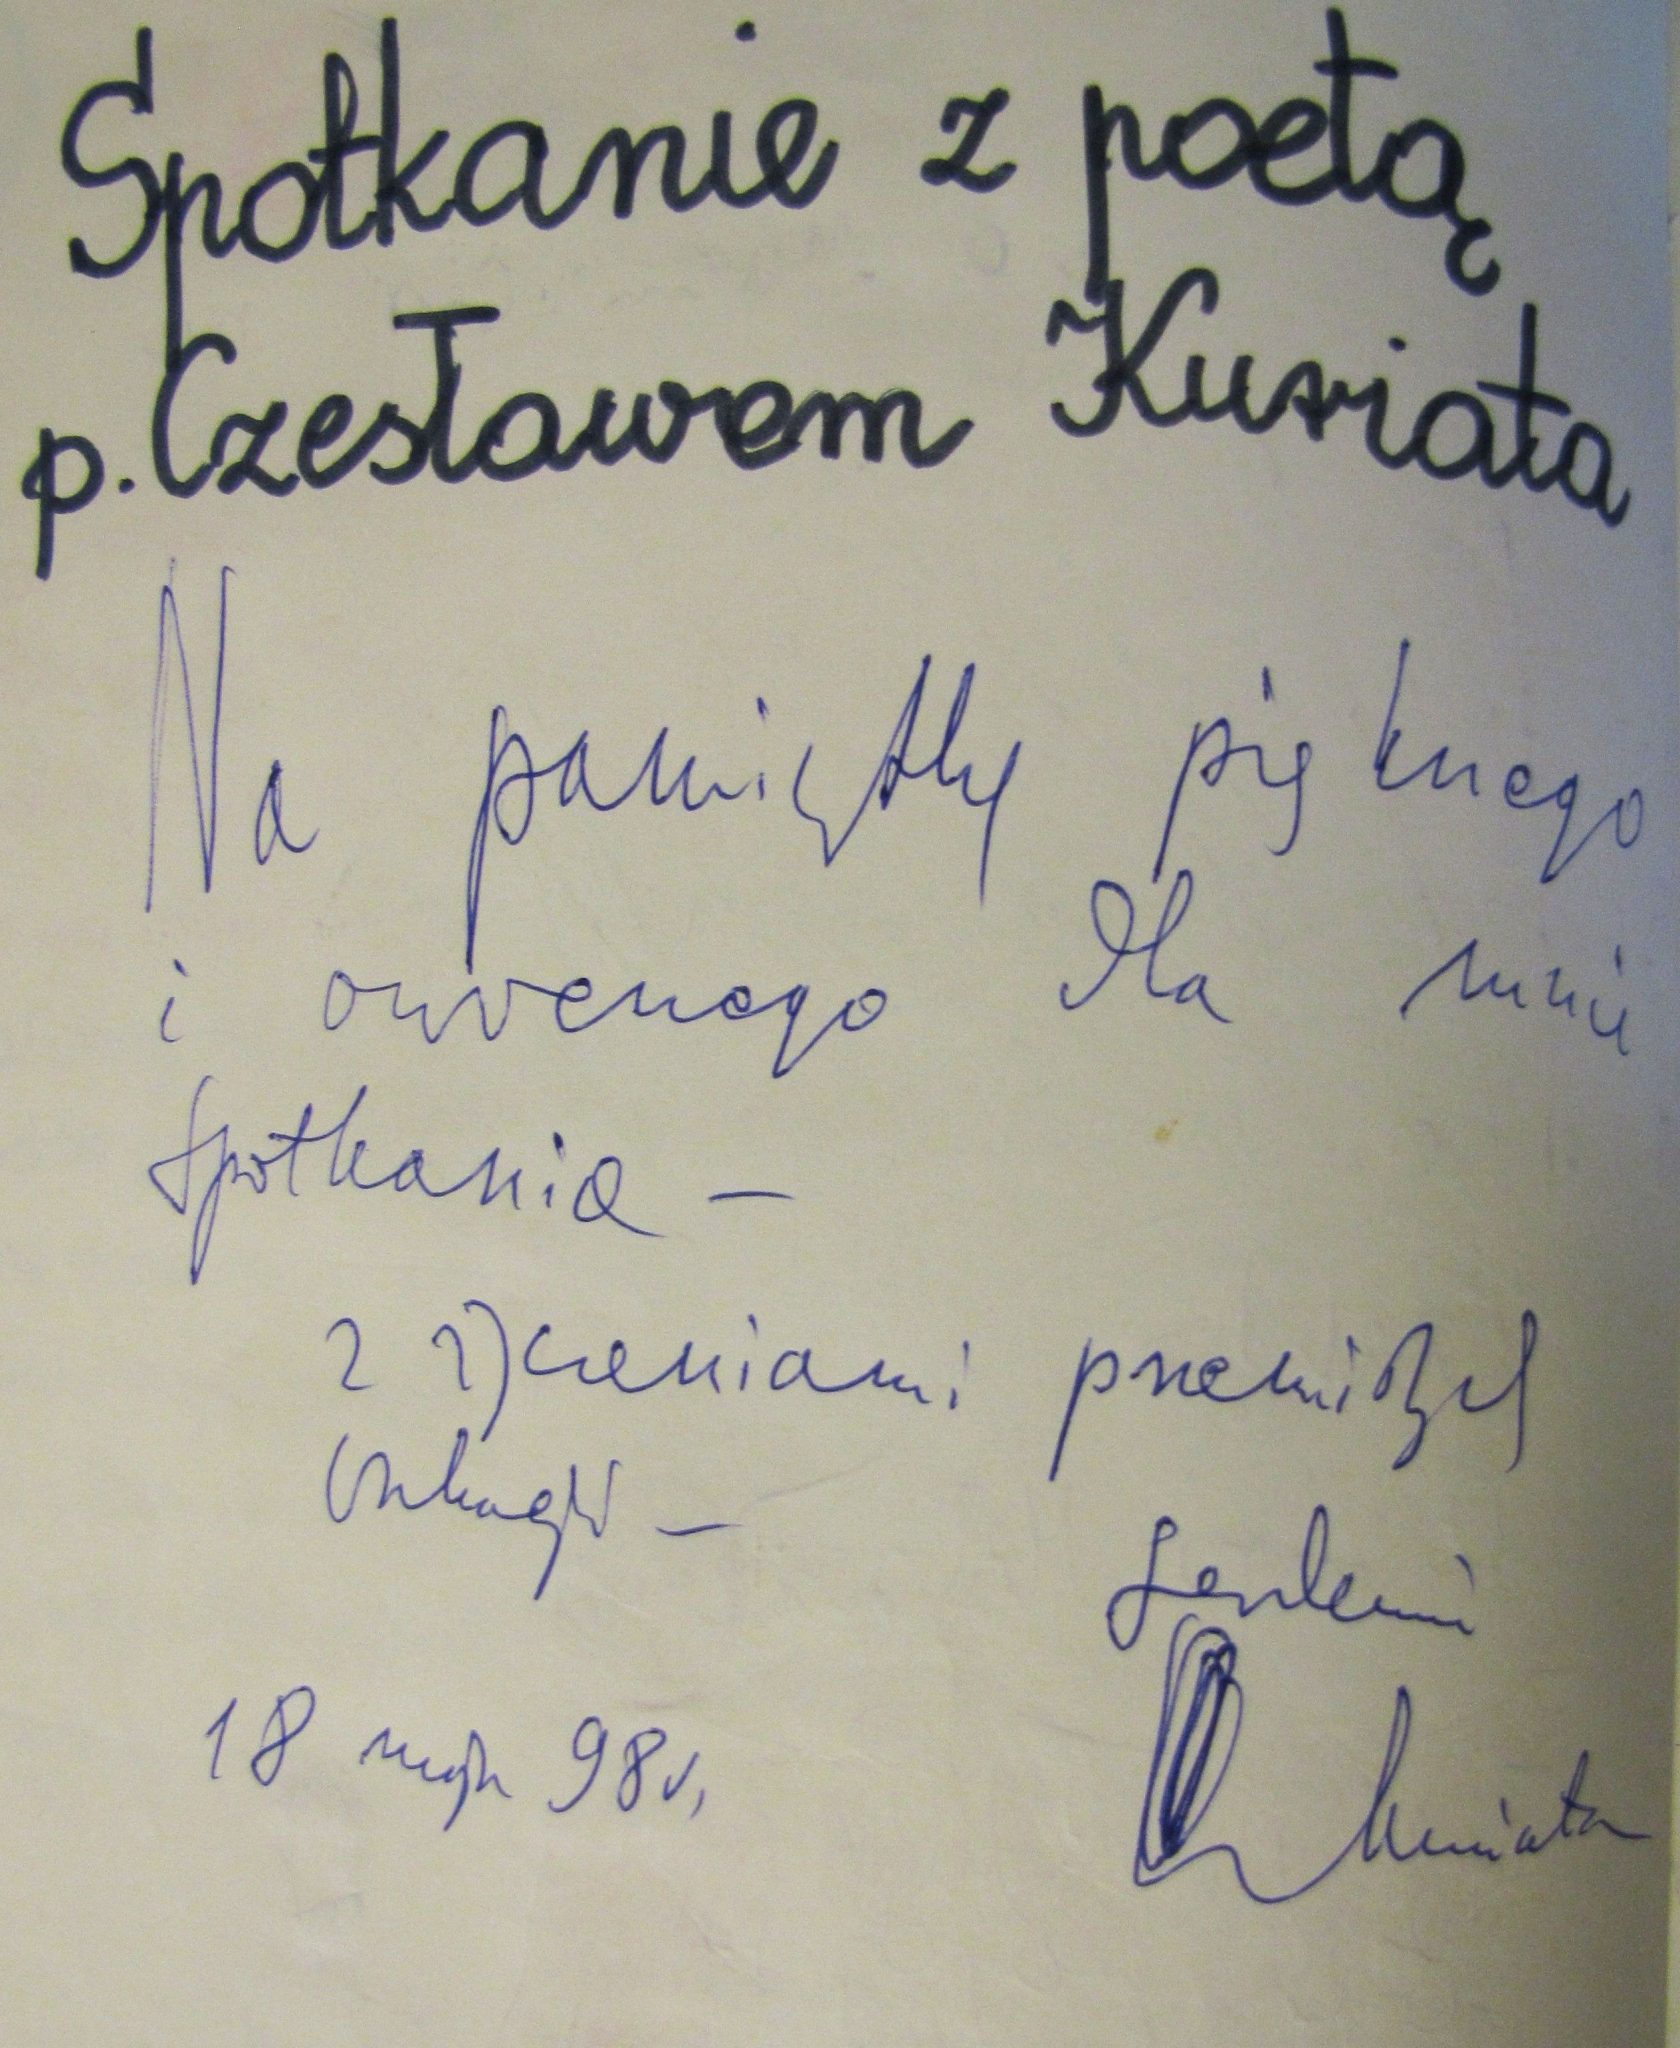 Spotkanie z poetą
p. Czesławem Kuriata
Na pamiątkę pięknego
i owocnego dla mnie
spotkania –
z życzeniami
18 maja 98 r.
Kuriata